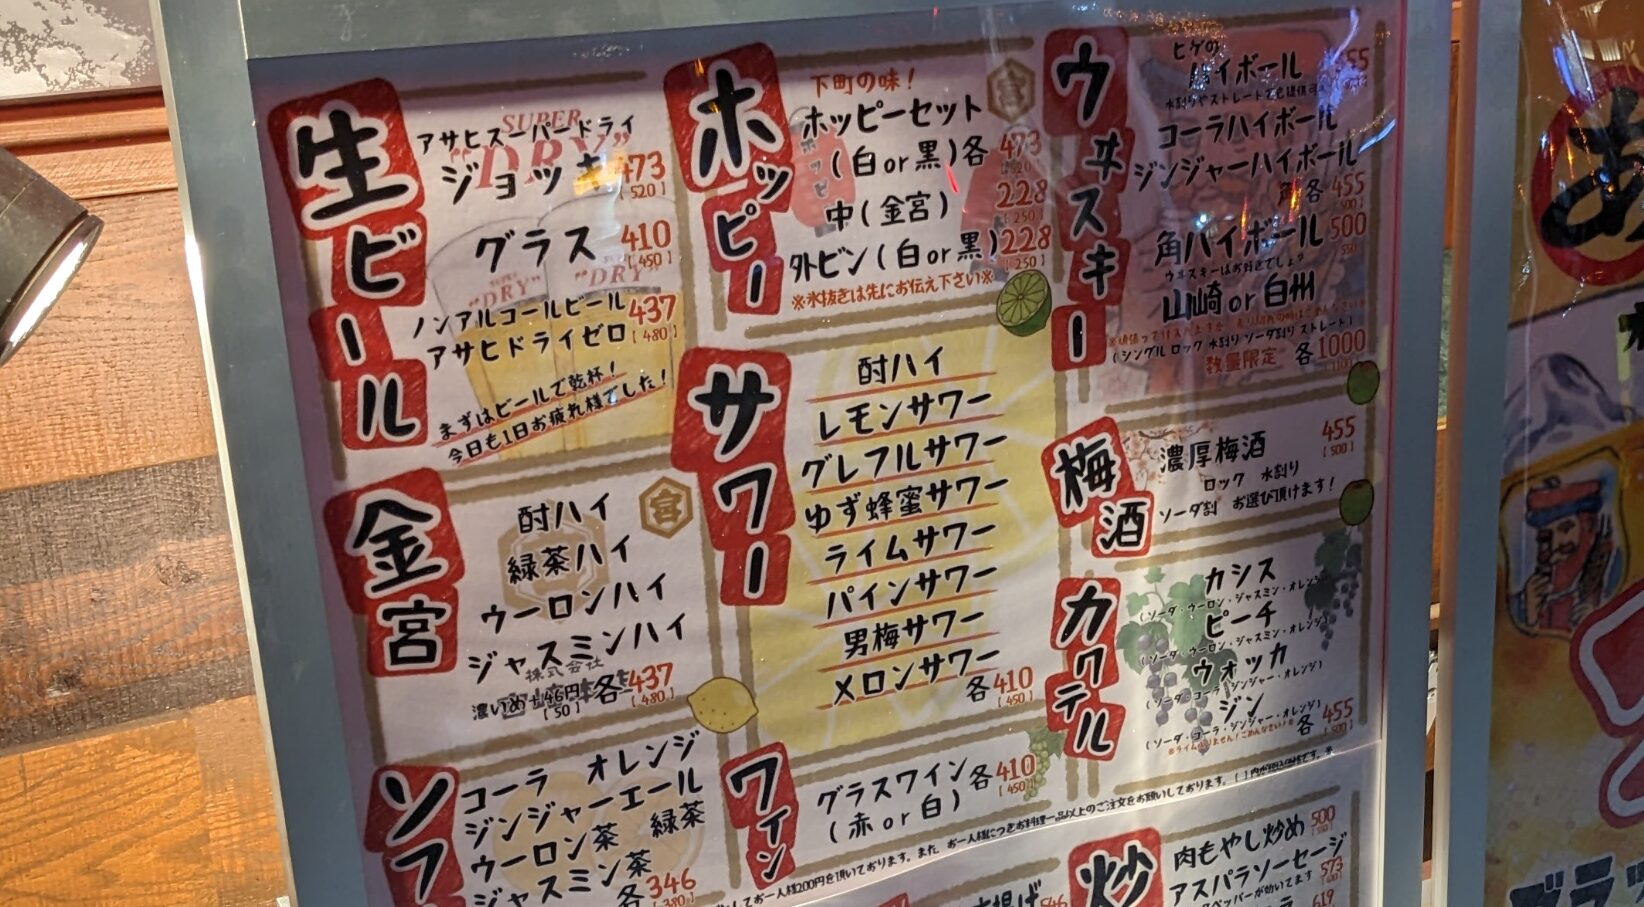 生ビール
アサヒスーパードライ
SUPER
"DRY"
ジョッキ 473
[520]
グラス 410
[450]
"DRY"
"DRY"
ノンアルコールビール
アサヒドライゼロ 437
[480]
まずはビールで乾杯!
今日も1日お疲れ様でした!
金宮
宮
酎ハイ
緑茶ハイ
ウーロンハイ
ジャスミンハイ
株式会社
濃いめ+46円 各437
[50] [480]
ソフ
コーラ オレンジ
ジンジャーエール
ウーロン茶 緑茶
ジャスミン茶
各346
ホッピー
下町の味!
宮
ホッピーセット
(白or黒)各 473
[520]
中(金宮) 228
[250]
外ビン(白or黒) 228
[250]
※氷抜きは先にお伝え下さい※
サワー
酎ハイ
レモンサワー
グレフルサワー
ゆず蜂蜜サワー
ライムサワー
パインサワー
男梅サワー
メロンサワー
各410
[450]
ワイン
グラスワイン各410
(赤or白) [450]
ウヰスキー
ヒゲの
ハイボール
コーラハイボール
ジンジャーハイボール
各455
[500]
角ハイボール 500
ウヰスキーはお好きでしょ♪
山崎or白州
(シングル ロック 水割り ソーダ割り ストレート)
数量限定 各1000
[1100]
梅酒
濃厚梅酒 455
[500]
ロック 水割り
ソーダ割 お選び頂けます!
カクテル
カシス
(ソーダ・ウーロン・ジャスミン・オレンジ)
ピーチ
(ソーダ・ウーロン・ジャスミン・オレンジ)
ウォッカ
(ソーダ・コーラ・ジンジャー・オレンジ)
ジン
(ソーダ・コーラ・ジンジャー・オレンジ)
各455
[500]
お一人様200円を頂いております。また、お一人様につきお料理一品以上のご注文をお願いしております。
炒
肉もやし炒め 500
アスパラソーセージ 573
619